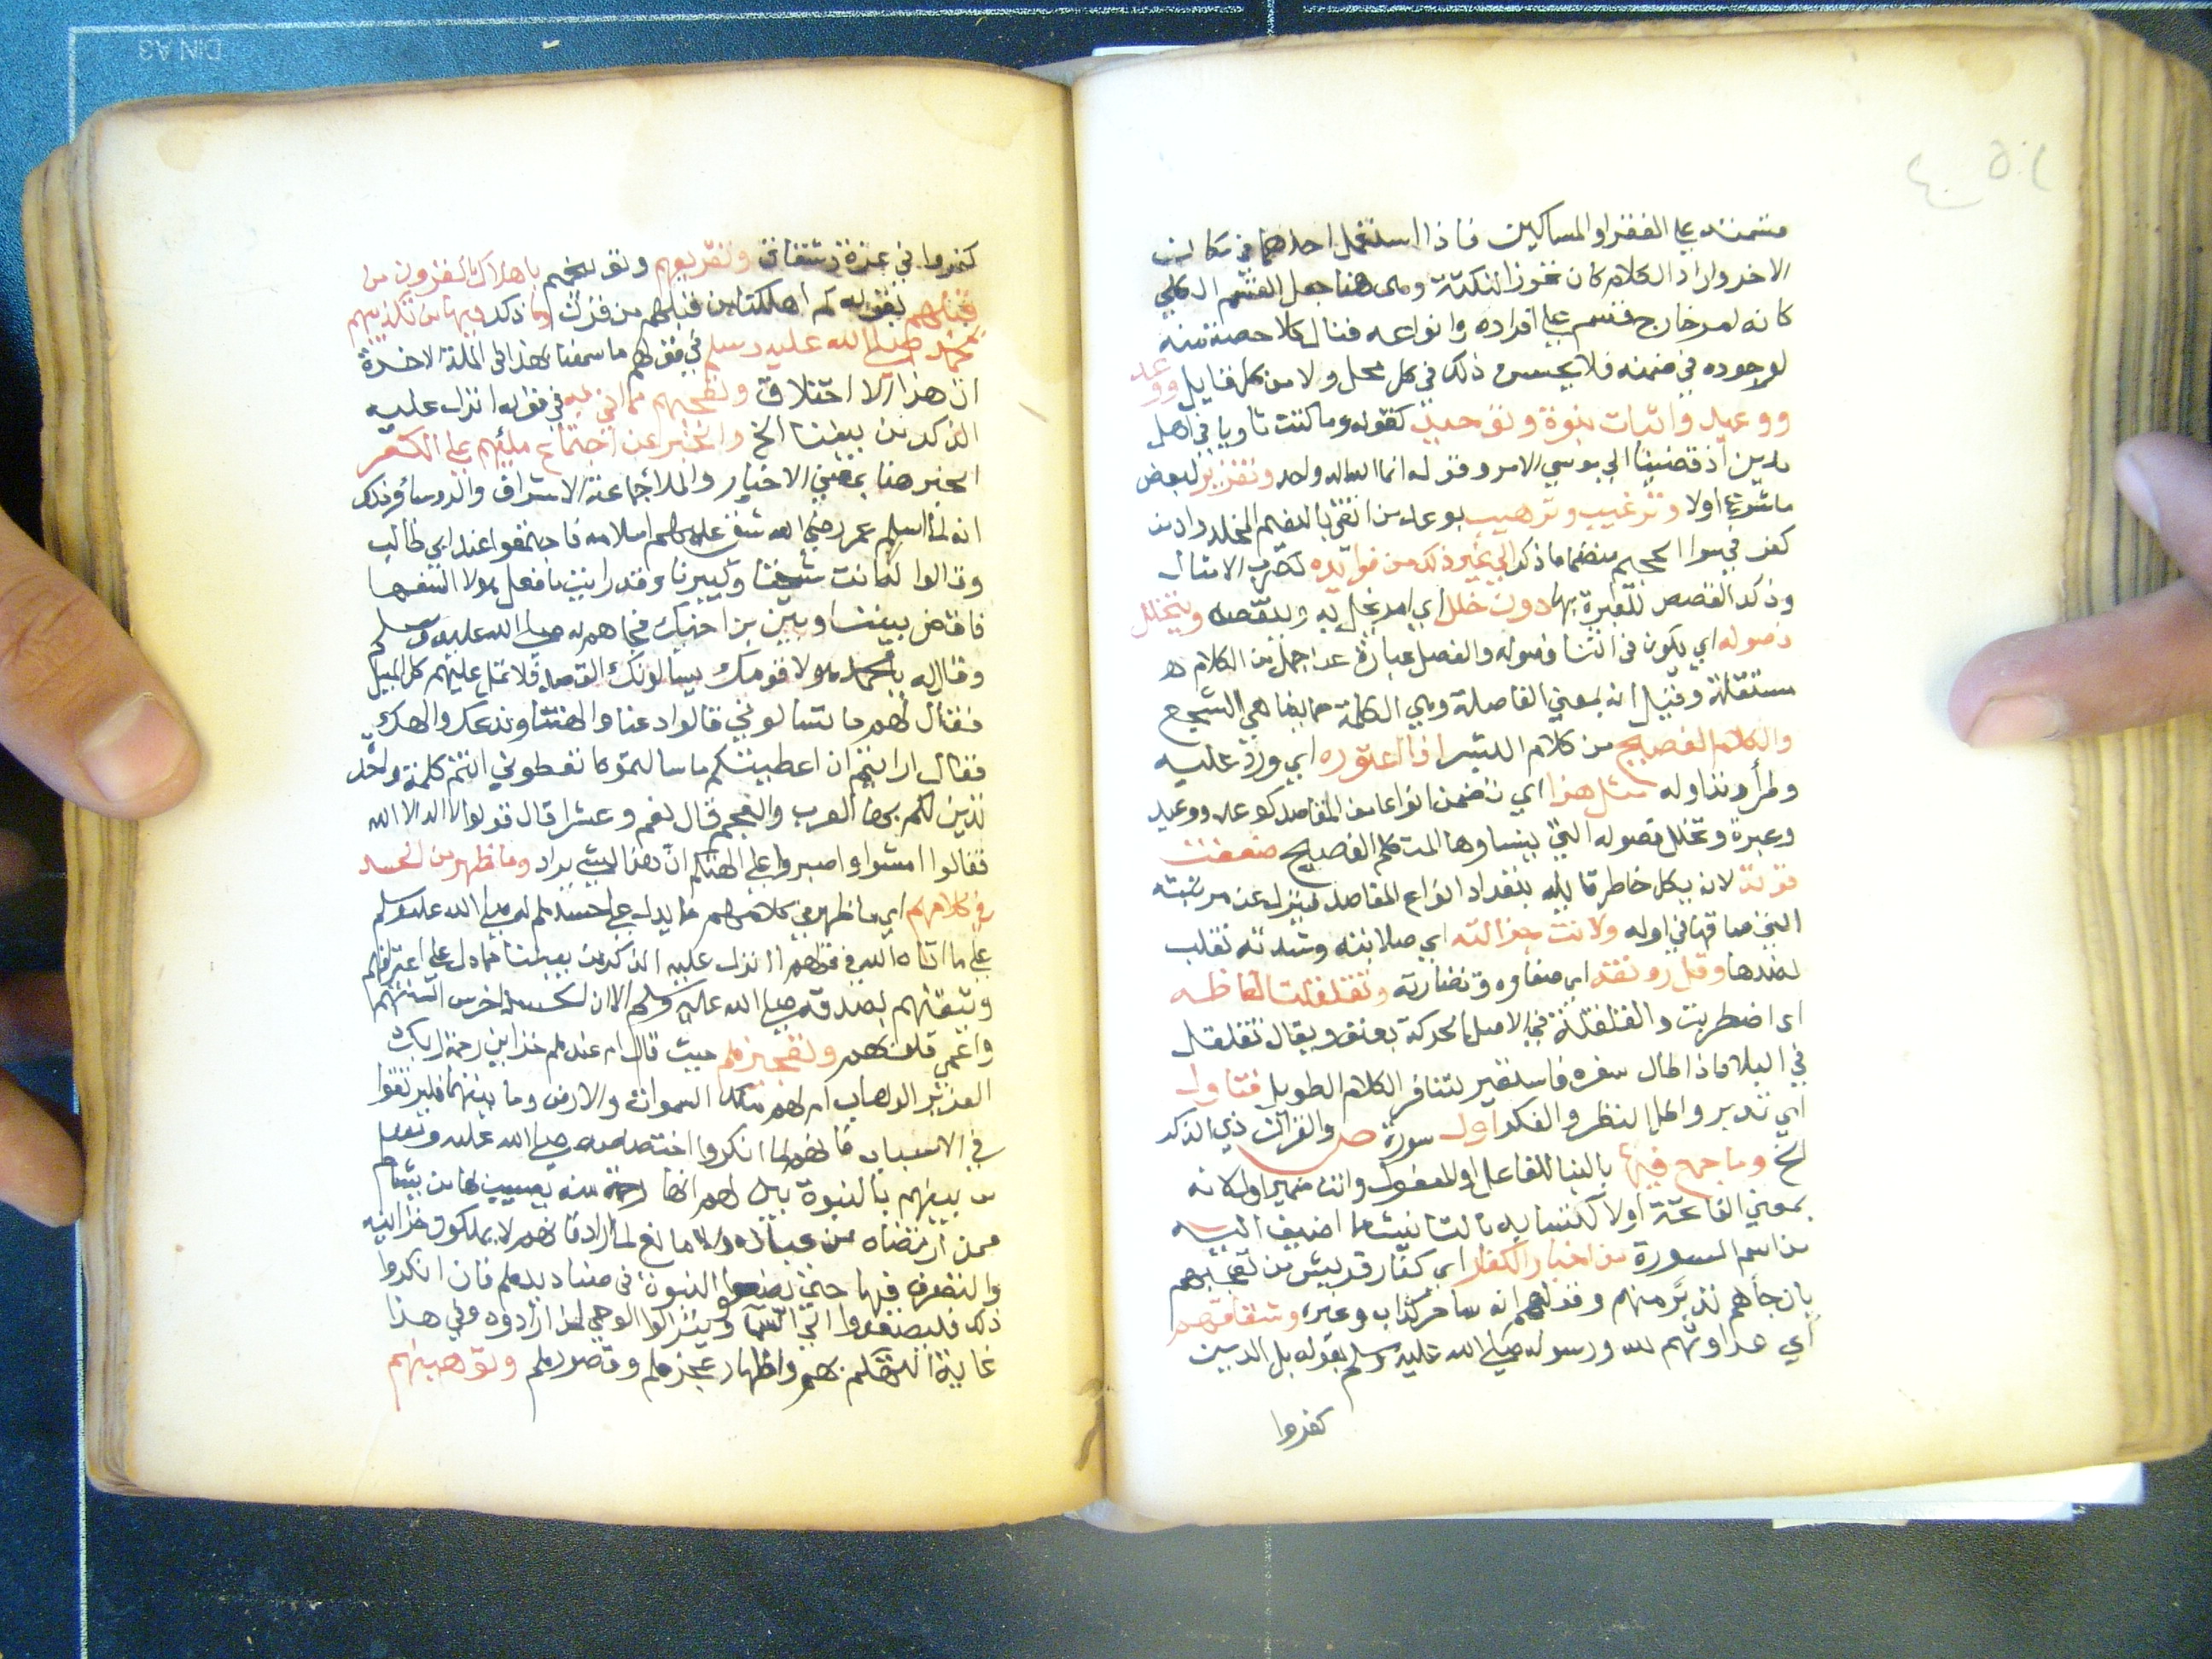 فتسمته علي الفقرا والمساكين فاذا استعمل احدهما في مكان
الاخر واراد الكلام كان نحوز النكتة ومن هنا جعل القسم الكلي
كانه امر خارج فقسم علي افراده وانواعه فنال كلا حصة منه
لوجوده في ضمنه فلا يحسن ذلك في كل محل ولا من كل قايل ووعد
ووعيد واثبات نبوة وتوحيد كقوله وما كنت ثاويا في اهل
مدين اذ قضينا الي موسي الامر وقوله انما الله اله واحد وتقرير لبعض
ما شرع اولا وترغيب وترهيب بوعد من اتقي بالنعيم المخلد وان من
كفر في سوا الجحيم منضما ما ذكر الي غير ذلك من فوايده كضرب الامثال
وذكر القصص للعبرة بها دون خلل اي امر يخل به وينقصه ويتخلل
فصوله اي يكون في اثنا فصوله والفصل عبارة عن جمل من الكلام
مستقلة وقيل انه بمعني الفاصلة وهي الكلمة
والكلام الفصيح من كلام البشر اذا اعتوره اي ورد عليه
وطرأ وتداوله مثل هذا اي تضمن انواعا من المقاصد كوعد ووعيد
وعبرة وتخلل فصوله التي ينشاوها المتكلم الفصيح ضعفت
قوته لانه يكل خاطر قايله بتعداد انواع المقاصد فينزل عن مرتبته
التي ساقها في اوله ولانت جزالته اي صلابته وشدته تقلب
لضدها وقل رونقه اي صفاوه ونضارته وتقلقلت الفاظه
اي اضطربت والقلقلة في الاصل الحركة بعنف ويقال تقلقل
في البلاد اذا طال سفره فاستعير لتنافر الكلام الطويل فتاول
اي تدبر واعمل النظر والفكر اول سورة ص والقران ذي الذكر
الخ وما جمع فيها بالبنا للفاعل او المفعول وانث ضمير اول لانه
بمعني الفاتحة او لاكتسابه التانيث مما اضيف اليه
من اسم السورة من اخبار الكفار اي كفار قريش من تعجبهم
بان جاهم نذير منهم وقولهم انه ساحر كذاب وغيره وشقاقهم
اي عداوتهم لله ورسوله صلي الله عليه وسلم بقوله بل الذين
كفروا
كفروا في عزة وشقاق وتقريعهم وتوبيخهم باهلاك القرون من
قبلهم بقوله كم اهلكنا من قبلهم من قرن وما ذكر فيها من تكذيبهم
لمحمد صلي الله عليه وسلم في قولهم ما سمعنا بهذا في الملة الاخرة
ان هذا الا اختلاق وتعجبهم مما اتي به في قوله انزل عليه
الذكر من بيننا الخ والخبر عن اجتماع ملئهم علي الكفر
الخبر هنا بمعني الاخبار والملأ جماعة الاشراف والروسا وذلك
انه لما اسلم عمر رضي الله شق عليهم اسلامه فاجتمعوا عند ابي طالب
وقالوا له انت شيخنا وكبيرنا وقد رايت ما فعل هولا السفها
فاقض بيننا وبين بن اخيك فجاهم له صلي الله عليه وسلم
وقال له يا محمد هولا قومك يسالونك القصد فلا تمل عليهم كل الميل
فقال لهم ما تسالوني قالوا دعنا والهتنا وندعك والهك
فقال ارايتم ان اعطيتكم ما سالتموه اتعطوني انتم كلمة واحدة
تدين لكم بها العرب والعجم قال نعم وعشرا قال قولوا لا اله الا الله
فقالوا امشوا واصبروا علي الهتكم ان هذا لشي يراد وما ظهر من الحسد
في كلامهم اي ما ظهر في كلامهم مما يدل علي حسدهم له صلي الله عليه وسلم
علي ما اتاه الله في قولهم اانزل عليه الذكر من بيننا مما دل علي اعترافهم
وتيقنهم بصدقه صلي الله عليه وسلم الا ان الحسد اخرس السنتهم
واعمي قلوبهم وتعجيزهم حيث قال ام عندهم خزاين رحمة ربك
العزيز الوهاب ام لهم ملك السموات والارض وما بينهما فليرتقوا
في الاسباب فانهم لما انكروا اختصاصه صلي الله عليه وسلم
من بينهم بالنبوة بين لهم انها رحمة منه يصيب بها من يشا
ممن ارتضاه من عباده ولا مانع لما اراد فانهم لا يملكون خزاينه
والتصرف فيها حتي يضعوا النبوة في صناديدهم فان انكروا
ذلك فليصعدوا الي السما وينزلوا الوحي لمن ارادوه وفي هذا
غاية التهكم بهم واظهار عجزهم وقصورهم وتوهينهم